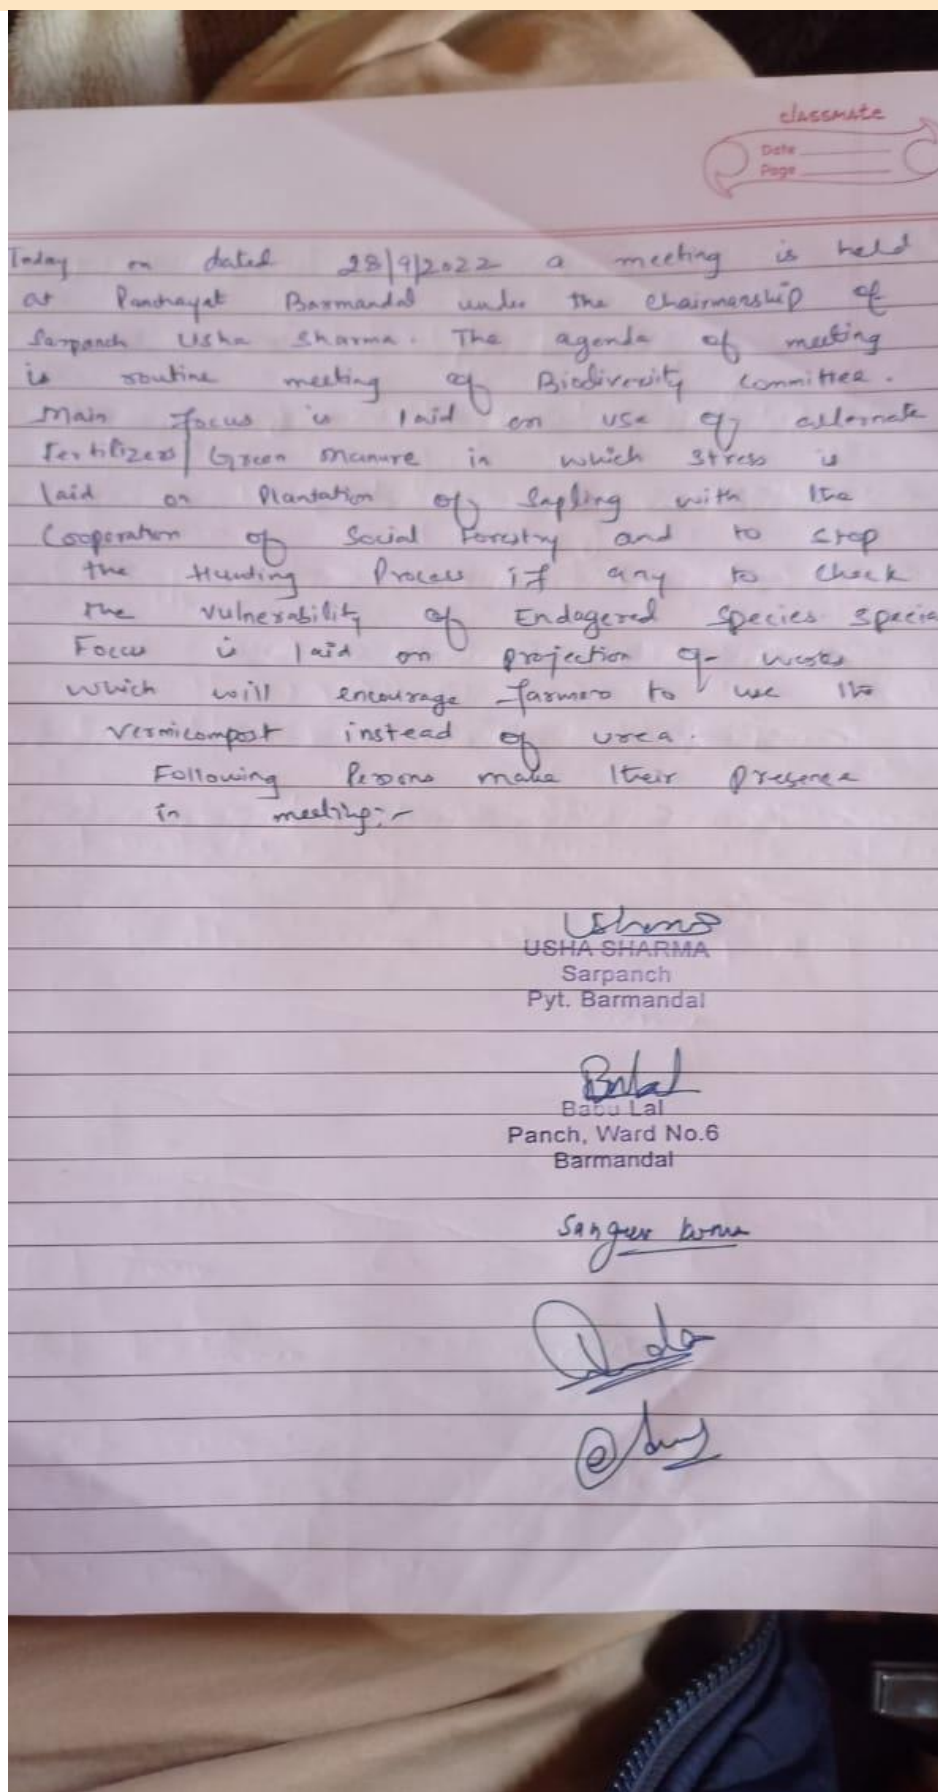 classmate
Date
Page
Today on dated 28/9/2022 a meeting is held
at Panchayat Barmandal under the Chairmanship of
Sarpanch Usha Sharma. The agenda of meeting
is routine meeting of Biodiversity Committee.
Main Focus is laid on use of alternate
Fertilizers/Green Manure in which stress is
laid on Plantation of Sapling with the
Cooperation of Social Forestry and to stop
the Hunting Process if any to check
the vulnerability of Endagered Species special
Focus is laid on projection of
which will encourage farmers to use the
Vermicompost instead of urea.
Following Persons make their presence
in meeting:-
USHA SHARMA
Sarpanch
Pyt. Barmandal
Babu Lal
Panch, Ward No.6
Barmandal